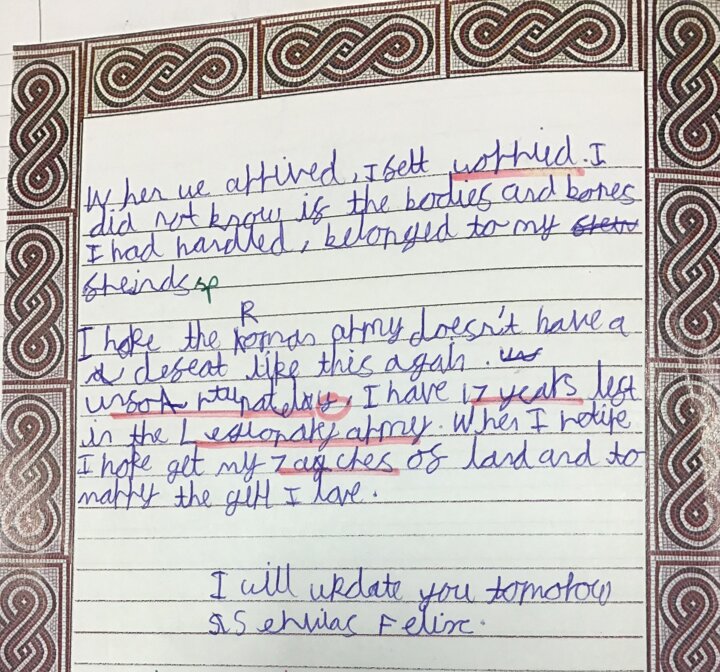 When we arrived, I felt worried. I
did not know if the bodies and bones
I had handled, belonged to my
freinds sp
R
I hope the roman army doesn't have a
defeat like this again.
unfortunately, I have 17 years left
in the Legionary army. When I retire
I hope get my 7 aches of land and to
marry the gerl I love.
I will update you tomorow
Servias Felix.